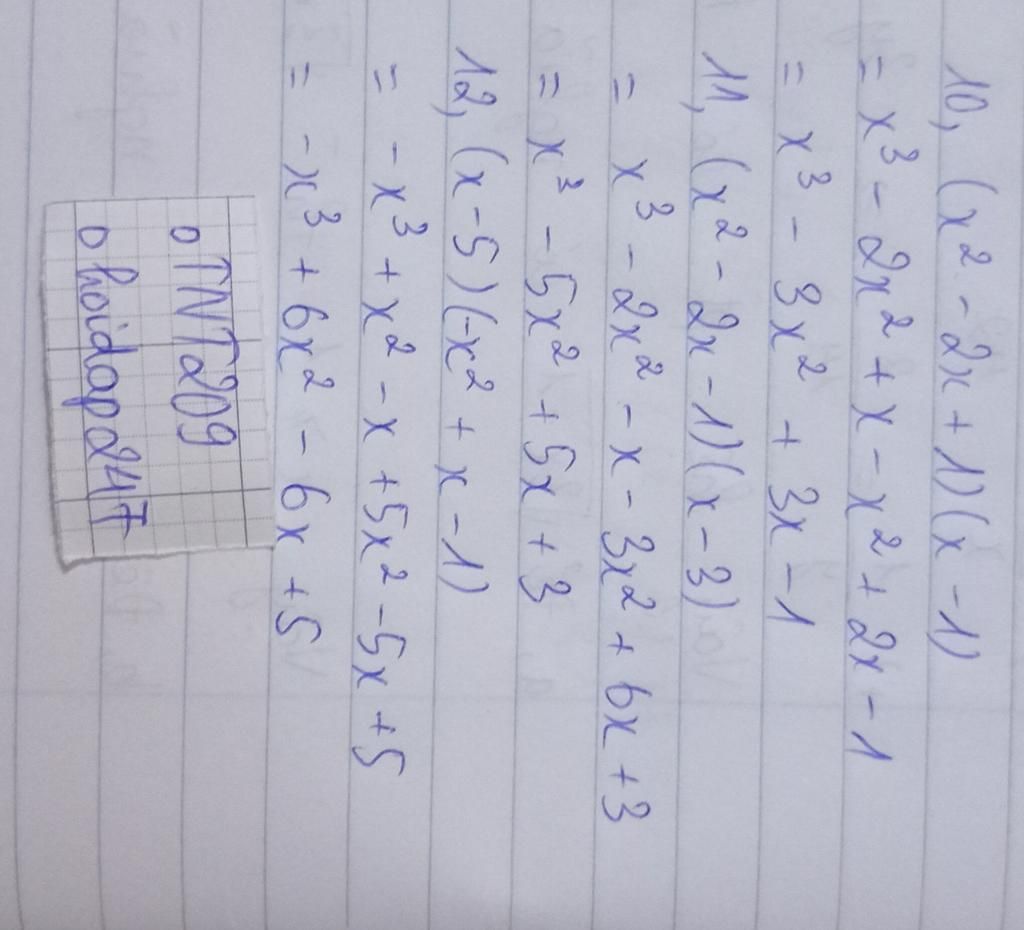 10, (x² - 2x + 1)(x - 1)
= x³ - 2x² + x - x² + 2x - 1
= x³ - 3x² + 3x - 1
11, (x² - 2x - 1)(x - 3)
= x³ - 2x² - x - 3x² + 6x + 3
= x³ - 5x² + 5x + 3
12, (x - 5)(-x² + x - 1)
= -x³ + x² - x + 5x² - 5x + 5
= -x³ + 6x² - 6x + 5
o TNT209
o hoidap247